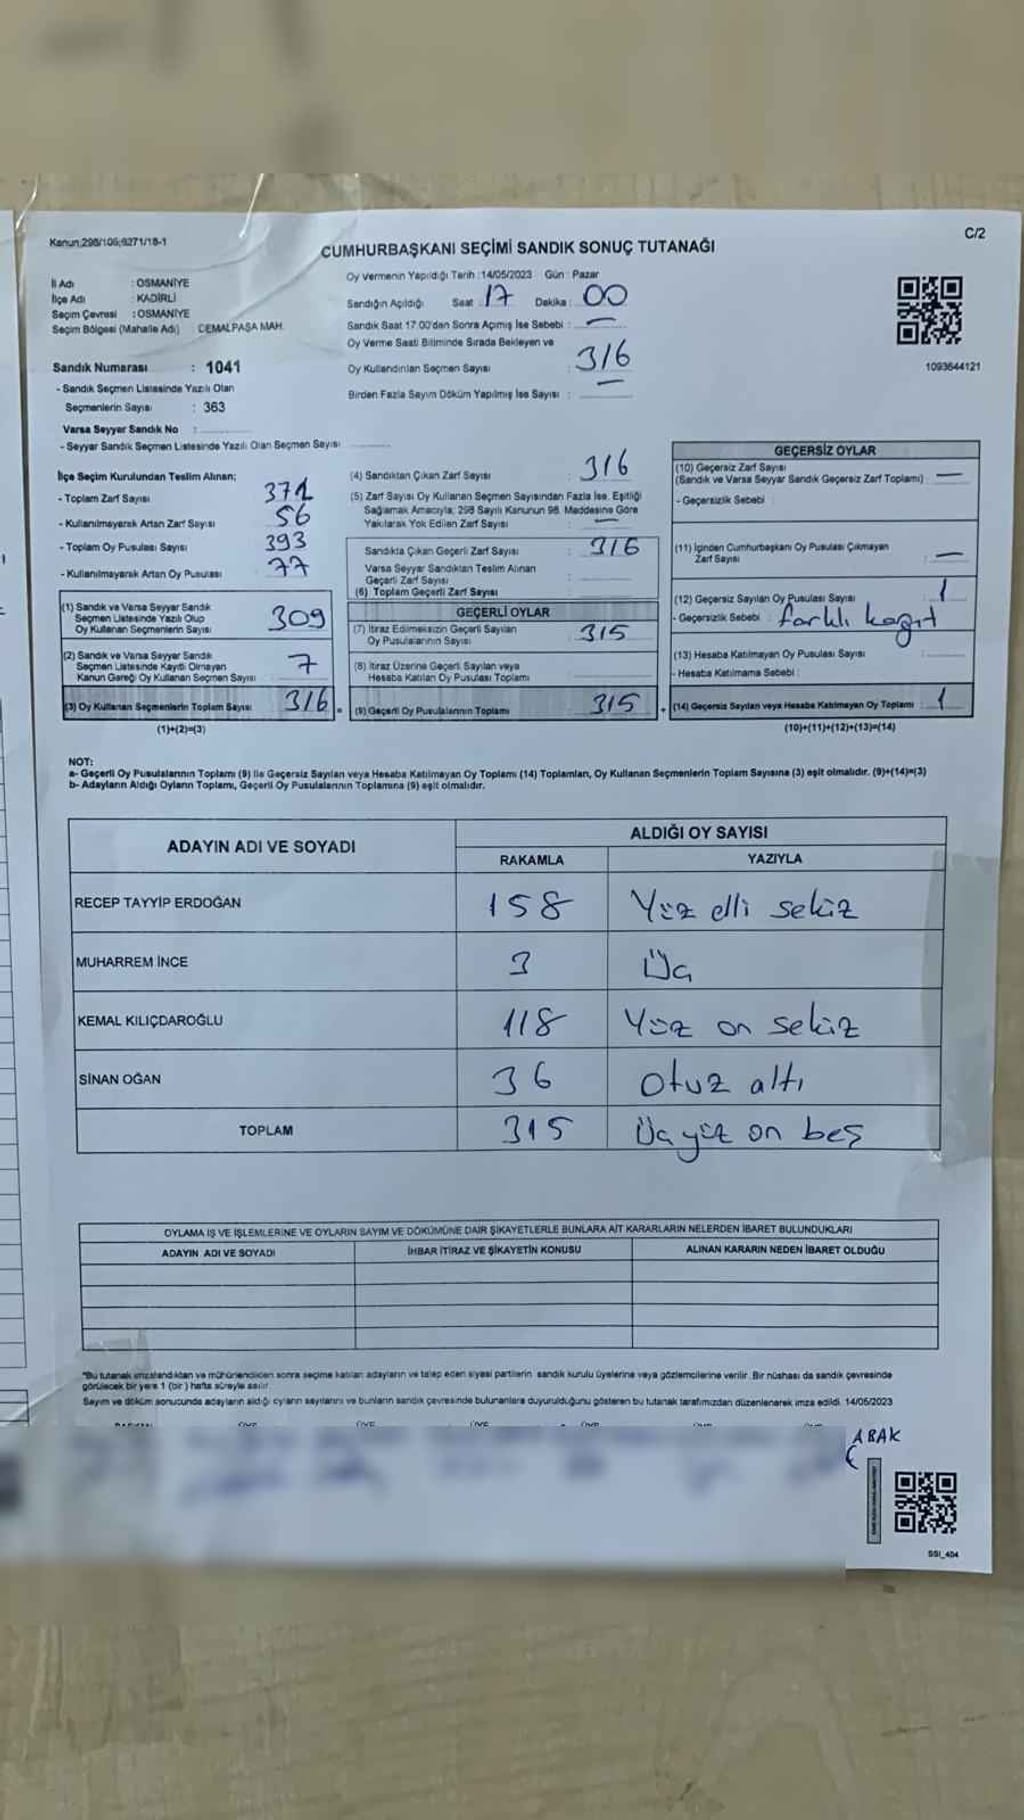 Kanun:298/105;6271/18-1
C/2
CUMHURBAŞKANI SEÇİMİ SANDIK SONUÇ TUTANAĞI
İl Adı : OSMANİYE
İlçe Adı : KADİRLİ
Seçim Çevresi : OSMANİYE
Seçim Bölgesi (Mahalle Adı) : CEMALPAŞA MAH.
Oy Vermenin Yapıldığı Tarih :14/05/2023 Gün : Pazar
Sandığın Açıldığı Saat : 17 Dakika : 00
Sandık Saat 17.00'den Sonra Açılmış İse Sebebi : —
Oy Verme Saati Bitiminde Sırada Bekleyen ve
Oy Kullandırılan Seçmen Sayısı : 316
Birden Fazla Sayım Döküm Yapılmış İse Sayısı : —
1093644121
Sandık Numarası : 1041
- Sandık Seçmen Listesinde Yazılı Olan
Seçmenlerin Sayısı : 363
Varsa Seyyar Sandık No :
- Seyyar Sandık Seçmen Listesinde Yazılı Olan Seçmen Sayısı
İlçe Seçim Kurulundan Teslim Alınan;
- Toplam Zarf Sayısı 372
- Kullanılmayarak Artan Zarf Sayısı 56
- Toplam Oy Pusulası Sayısı 393
- Kullanılmayarak Artan Oy Pusulası 77
(1) Sandık ve Varsa Seyyar Sandık
Seçmen Listesinde Yazılı Olup
Oy Kullanan Seçmenlerin Sayısı 309
(2) Sandık ve Varsa Seyyar Sandık
Seçmen Listesinde Kayıtlı Olmayan
Kanun Gereği Oy Kullanan Seçmen Sayısı 7
(3) Oy Kullanan Seçmenlerin Toplam Sayısı 316
(1)+(2)=(3)
(4) Sandıktan Çıkan Zarf Sayısı : 316
(5) Zarf Sayısı Oy Kullanan Seçmen Sayısından Fazla İse, Eşitliği
Sağlamak Amacıyla; 298 Sayılı Kanunun 98. Maddesine Göre
Yakılarak Yok Edilen Zarf Sayısı : —
Sandıkta Çıkan Geçerli Zarf Sayısı : 316
Varsa Seyyar Sandıktan Teslim Alınan
Geçerli Zarf Sayısı
(6) Toplam Geçerli Zarf Sayısı
GEÇERLİ OYLAR
(7) İtiraz Edilmeksizin Geçerli Sayılan
Oy Pusulalarının Sayısı : 315
(8) İtiraz Üzerine Geçerli Sayılan veya
Hesaba Katılan Oy Pusulası Toplamı
(9) Geçerli Oy Pusulalarının Toplamı 315
GEÇERSİZ OYLAR
(10) Geçersiz Zarf Sayısı
(Sandık ve Varsa Seyyar Sandık Geçersiz Zarf Toplamı) : —
- Geçersizlik Sebebi :
(11) İçinden Cumhurbaşkanı Oy Pusulası Çıkmayan
Zarf Sayısı : —
(12) Geçersiz Sayılan Oy Pusulası Sayısı : 1
- Geçersizlik Sebebi : farklı kağıt
(13) Hesaba Katılmayan Oy Pusulası Sayısı :
- Hesaba Katılmama Sebebi :
(14) Geçersiz Sayılan veya Hesaba Katılmayan Oy Toplamı : 1
(10)+(11)+(12)+(13)=(14)
NOT:
a- Geçerli Oy Pusulalarının Toplamı (9) ile Geçersiz Sayılan veya Hesaba Katılmayan Oy Toplamı (14) Toplamları, Oy Kullanan Seçmenlerin Toplam Sayısına (3) eşit olmalıdır. (9)+(14)=(3)
b- Adayların Aldığı Oyların Toplamı, Geçerli Oy Pusulalarının Toplamına (9) eşit olmalıdır.
ADAYIN ADI VE SOYADI ALDIĞI OY SAYISI
RAKAMLA YAZIYLA
RECEP TAYYİP ERDOĞAN 158 Yüz elli sekiz
MUHARREM İNCE 3 Üç
KEMAL KILIÇDAROĞLU 118 Yüz on sekiz
SİNAN OĞAN 36 Otuz altı
TOPLAM 315 Üçyüz on beş
OYLAMA İŞ VE İŞLEMLERİNE VE OYLARIN SAYIM VE DÖKÜMÜNE DAİR ŞİKAYETLERLE BUNLARA AİT KARARLARIN NELERDEN İBARET BULUNDUKLARI
ADAYIN ADI VE SOYADI İHBAR İTİRAZ VE ŞİKAYETİN KONUSU ALINAN KARARIN NEDEN İBARET OLDUĞU
*Bu tutanak imzalandıktan ve mühürlendikten sonra seçime katılan adayların ve talep eden siyasi partilerin sandık kurulu üyelerine veya gözlemcilerine verilir. Bir nüshası da sandık çevresinde
görülecek bir yere 1 (bir) hafta süreyle asılır.
Sayım ve döküm sonucunda adayların aldığı oyların sayılarını ve bunların sandık çevresinde bulunanlara duyurulduğunu gösteren bu tutanak tarafımızdan düzenlenerek imza edildi. 14/05/2023
ABAK
SSI_404